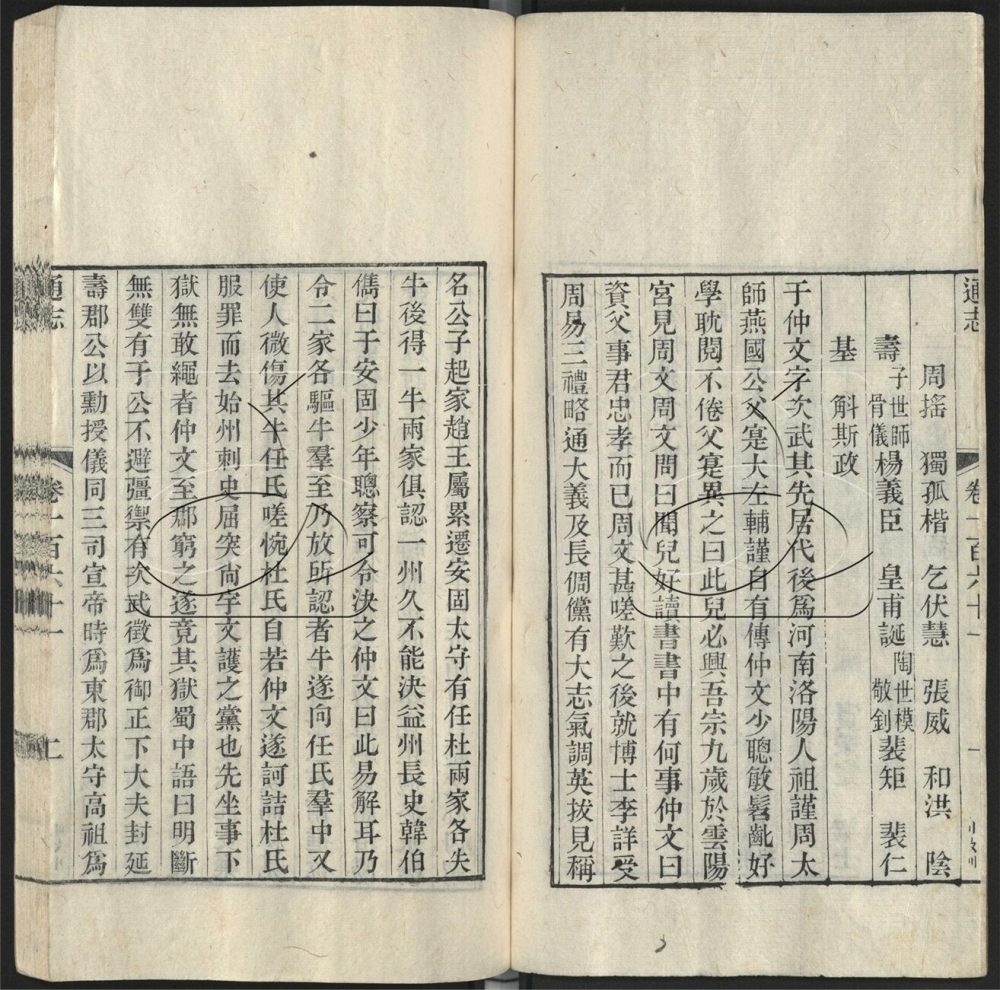 通志 卷一百六十一 一
周摇 獨孤楷 乞伏慧 張威 和洪 陰
壽子世師骨儀 楊義臣 皇甫誕陶世模敬釗 裴矩 裴仁
基 斛斯政
于仲文字次武其先居代後爲河南洛陽人祖謹周太
師燕國公父寔大左輔謹自有傳仲文少聰敏髫齔好
學耽閱不倦父寔異之曰此兒必興吾宗九歲於雲陽
宮見周文周文問曰聞兒好讀書書中有何事仲文曰
資父事君忠孝而已周文甚嗟歎之後就博士李詳受
周易三禮略通大義及長倜儻有大志氣調英拔見稱
名公子起家趙王屬累遷安固太守有任杜兩家各失
牛後得一牛兩家俱認一州久不能決益州長史韓伯
儁曰于安固少年聰察可令決之仲文曰此易解耳乃
令二家各驅牛羣至乃放所認者牛遂向任氏羣中又
使人微傷其牛任氏嗟惋杜氏自若仲文遂訶詰杜氏
服罪而去始州刺史屈突尙宇文護之黨也先坐事下
獄無敢繩者仲文至郡窮之遂竟其獄蜀中語曰明斷
無雙有于公不避彊禦有次武徵爲御正下大夫封延
壽郡公以勳授儀同三司宣帝時爲東郡太守高祖爲
通志 卷一百六十一 二